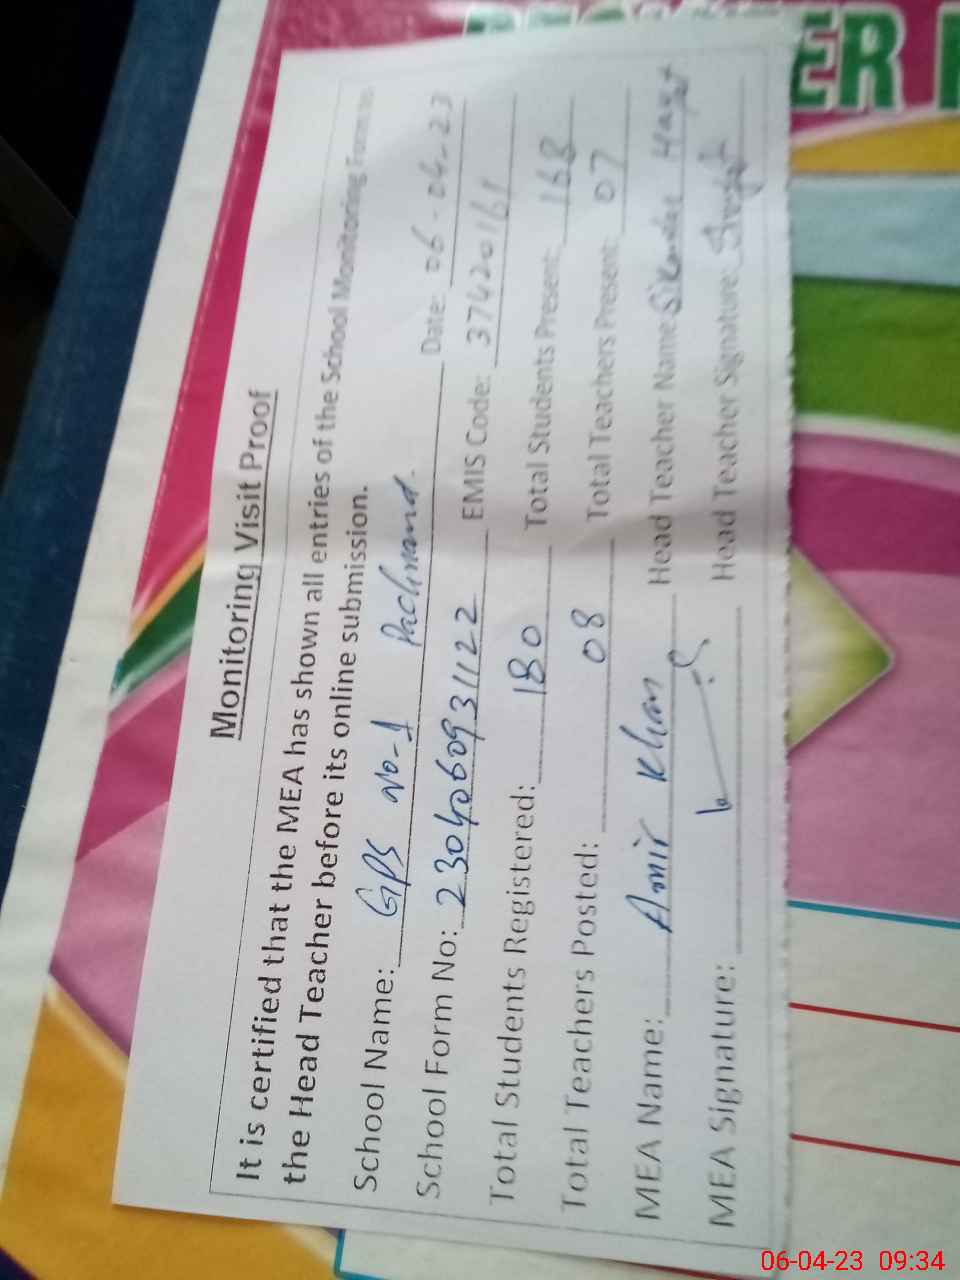 ER
Monitoring Visit Proof
It is certified that the MEA has shown all entries of the School Monitoring Form to
the Head Teacher before its online submission.
School Name: GPS No-1 Pachnand. Date: 06-04-23
School Form No: 2304060931122 EMIS Code: 37420161
Total Students Registered: 180 Total Students Present: 168
Total Teachers Posted: 08 Total Teachers Present: 07
MEA Name: Amir Khan Head Teacher Name: Sikander Hayat
MEA Signature: Head Teacher Signature:
06-04-23 09:34